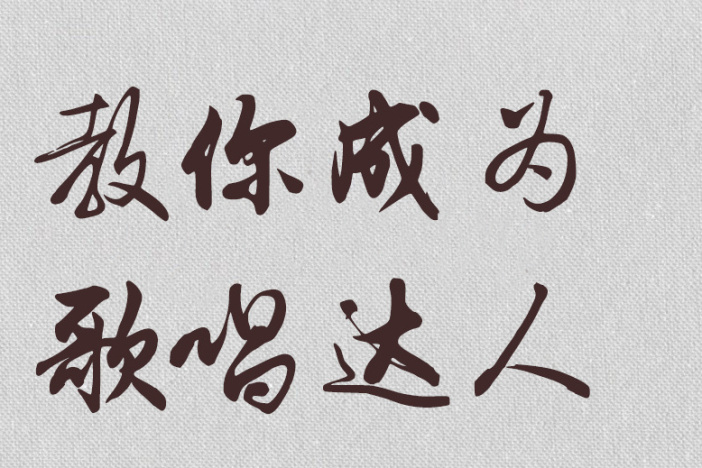 教你成为
歌唱达人